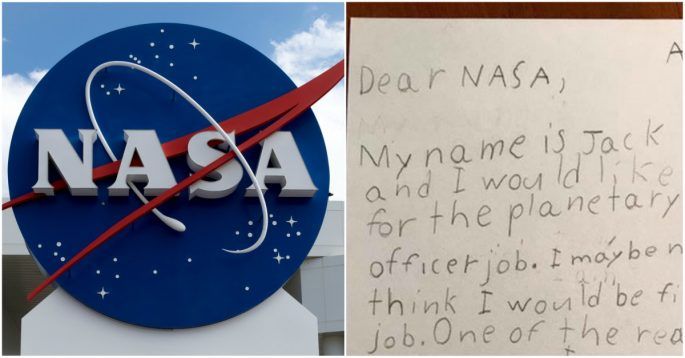 NASA
A
Dear NASA,
My name is Jack
and I would like
for the planetary
officer job. I maybe n
think I would be fi
job. One of the rea